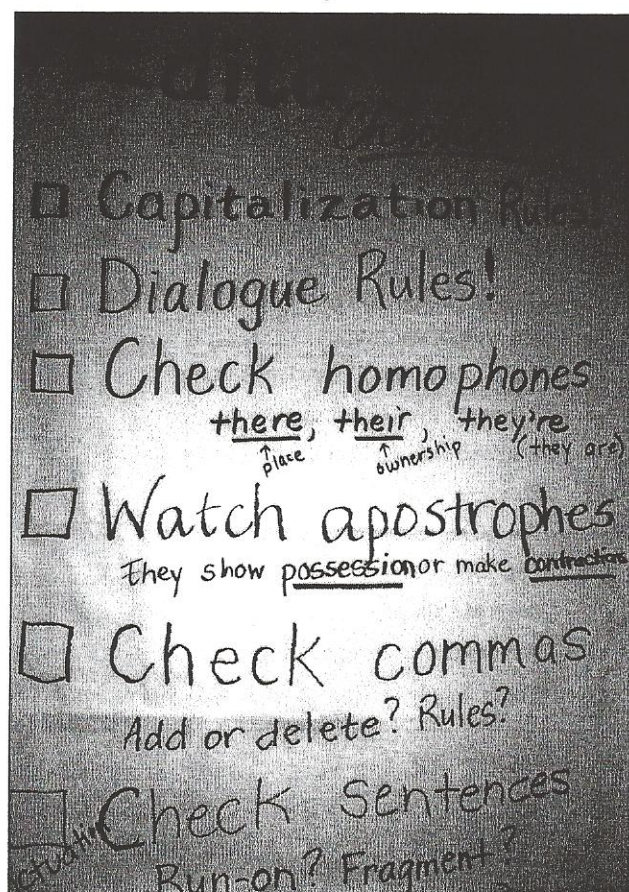 Capitalization Rules!
Dialogue Rules!
Check homophones
there, their, they're
place ownership (they are)
Watch apostrophes
they show possession or make contractions
Check commas
Add or delete? Rules?
Check Sentences
Run-on? Fragment?